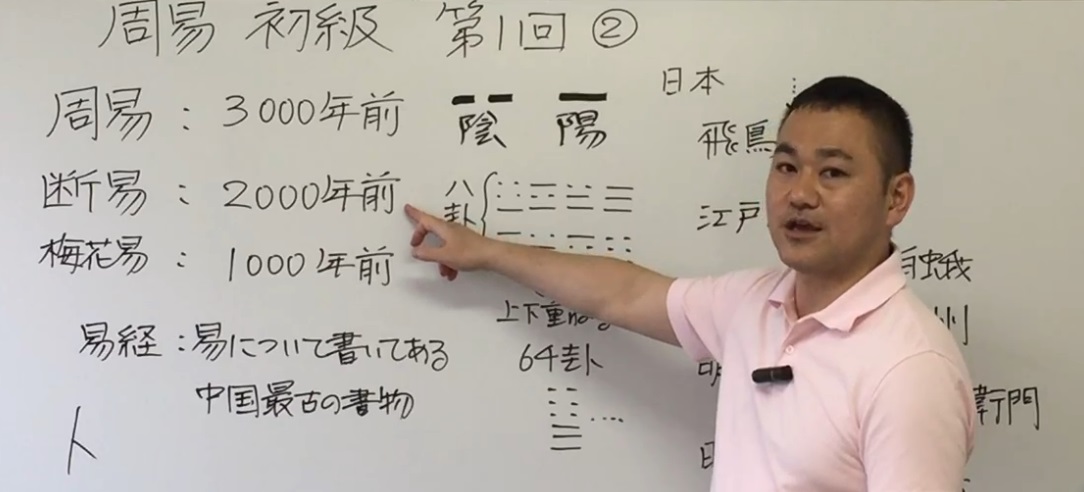 周易 初級 第11回 ②
周易 : 3000年前
断易 : 2000年前
梅花易 : 1000年前
易経 : 易について書いてある
中国最古の書物
卜
陰 陽
八卦
上下重
64卦
日本
飛鳥
江戸
蛾
州
衛門